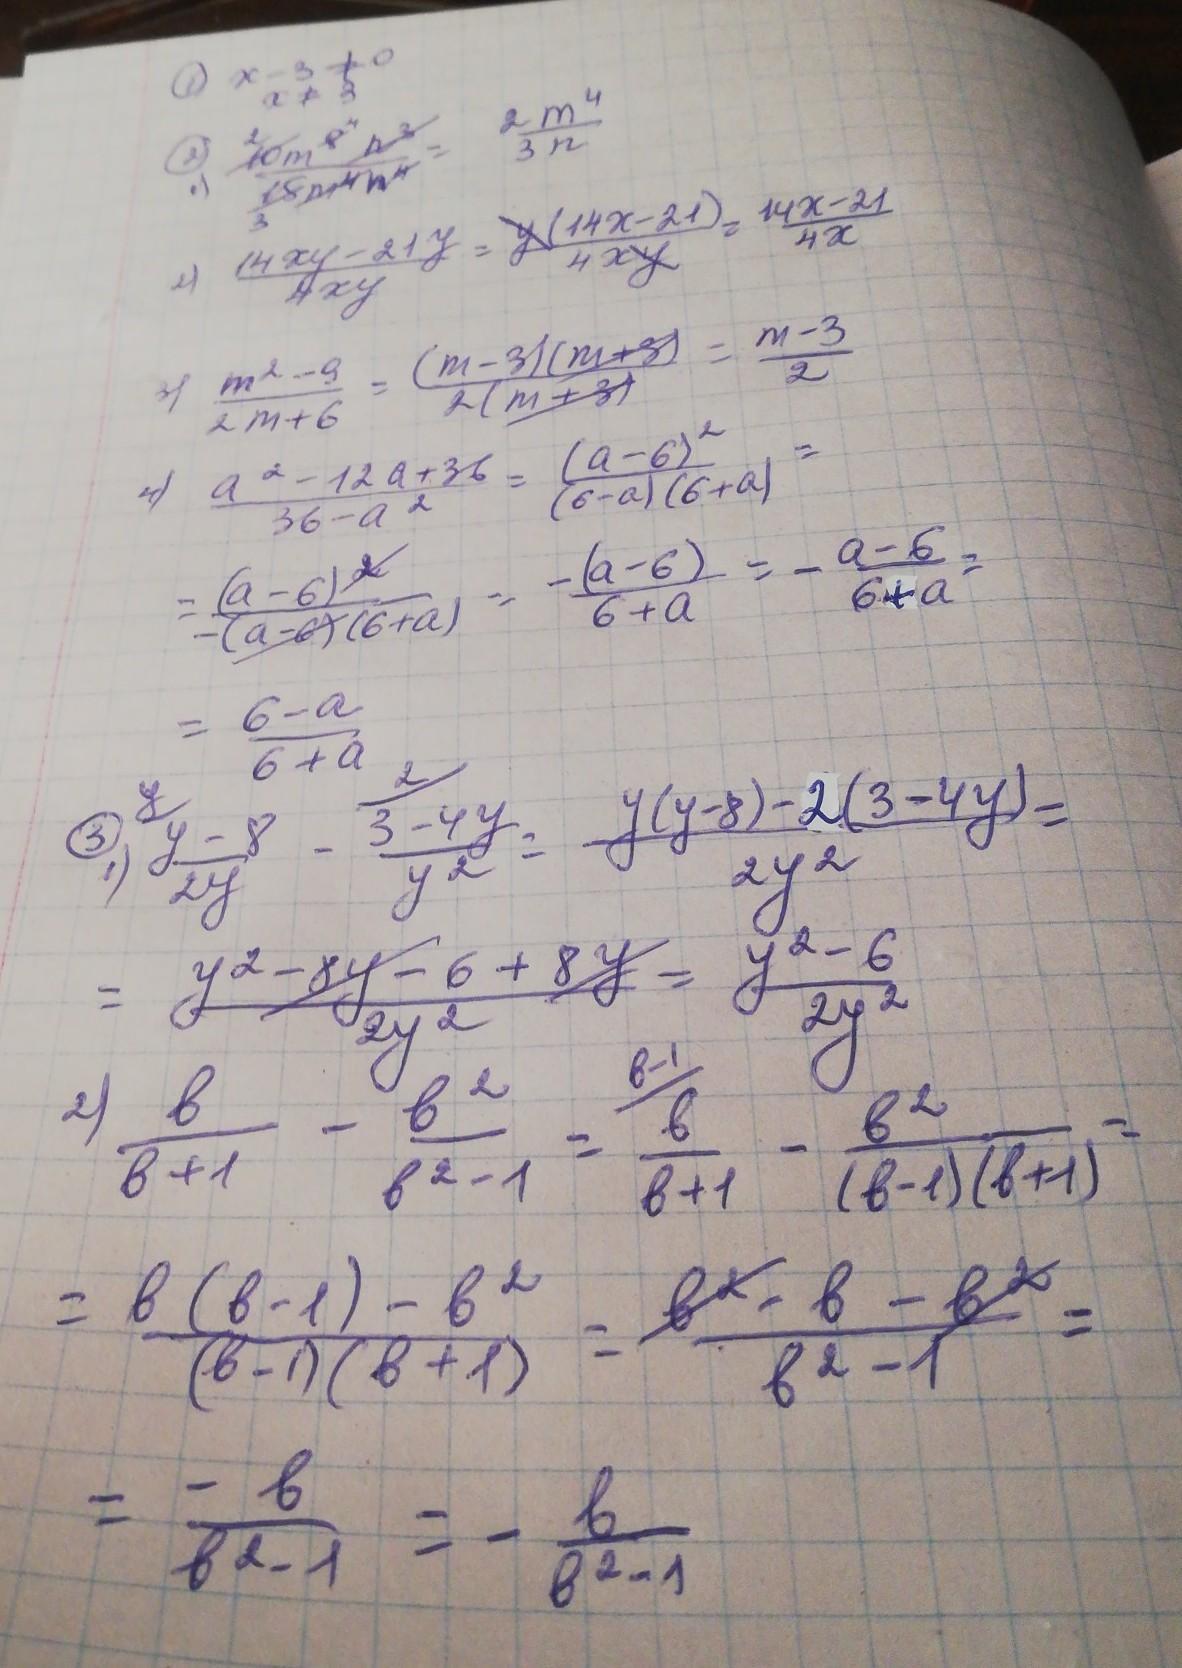 ① x - 3 ≠ 0
x ≠ 3
② 1) 10m⁸n³/15m⁴n⁴ = 2m⁴/3n
2) 14xy - 21y/4xy = y(14x - 21)/4xy = 14x - 21/4x
3) m² - 9/2m + 6 = (m - 3)(m + 3)/2(m + 3) = m - 3/2
4) a² - 12a + 36/36 - a² = (a - 6)²/(6 - a)(6 + a) =
= (a - 6)²/-(a - 6)(6 + a) = -(a - 6)/6 + a = - a - 6/6 + a =
= 6 - a/6 + a
③ 1) y/ y - 8/2y - 2/ 3 - 4y/y² = y(y - 8) - 2(3 - 4y)/2y² =
= y² - 8y - 6 + 8y/2y² = y² - 6/2y²
2) в/в + 1 - в²/в² - 1 = в-1/ в/в + 1 - в²/(в - 1)(в + 1) =
= в(в - 1) - в²/(в - 1)(в + 1) = в² - в - в²/в² - 1 =
= - в/в² - 1 = - в/в² - 1